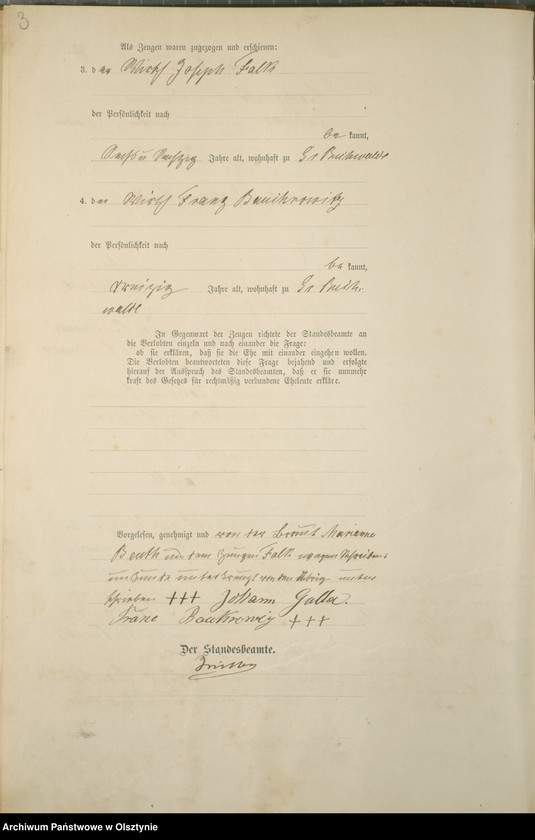 3
Als Zeugen waren zugezogen und erschienen:
3. der Wirth Joseph Falk
der Persönlichkeit nach
be kannt,
Jahre alt, wohnhaft zu Gr. Buchwalde
4. der Wirth Franz Baukrowitz
der Persönlichkeit nach
be kannt,
dreißig Jahre alt, wohnhaft zu Gr. Buch-
walde
In Gegenwart der Zeugen richtete der Standesbeamte an
die Verlobten einzeln und nach einander die Frage:
ob sie erklären, daß sie die Ehe mit einander eingehen wollen.
Die Verlobten beantworteten diese Frage bejahend und erfolgte
hierauf der Ausspruch des Standesbeamten, daß er sie nunmehr
kraft des Gesetzes für rechtmäßig verbundene Eheleute erkläre.
Vorgelesen, genehmigt und von der Braut Marianna
und dem Zeugen Falk wegen Schreibens-
unkunde unterkreuzt von den Übrigen unter
schrieben +++ Johann
Franc +++
Der Standesbeamte.
Archiwum Państwowe w Olsztynie